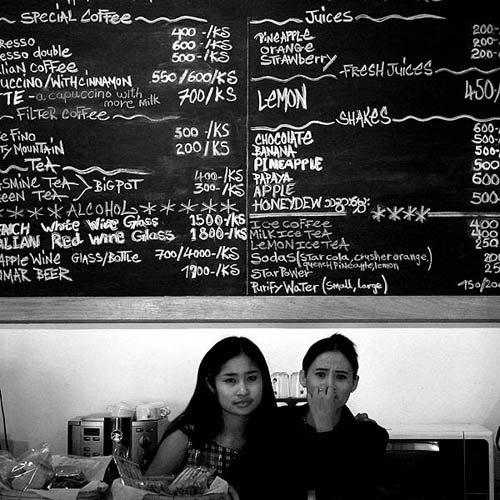 SPECIAL COFFEE
RESSO 400-/KS
ESSO DOUBLE 600-/KS
LIAN COFFEE 500-/KS
UCCINO/WITH CINNAMON 550/600/KS
TTE - a capuccino with more Milk 700/KS
FILTER COFFEE
E FINO 500-/KS
TY MOUNTAIN 200/KS
TEA
SMINE TEA 400-/KS
BIG POT
EEN TEA 300-/KS
****ALCOHOL*****
NCH White Wine Glass 1500/KS
ALIAN Red Wine Glass 1800/KS
APPLE WINE GLASS/BOTTLE 700/4000-/KS
NMAR BEER 1700-/KS
JUICES
PINEAPPLE 200-
ORANGE 200-
STRAWBERRY 200-
FRESH JUICES
LEMON 450/
SHAKES
CHOCOLATE 600-
BANANA 500-
PINEAPPLE 500-
PAPAYA 500
APPLE 600
HONEYDEW 500
****
ICE COFFEE 400
MILK ICE TEA 400
LEMON ICE TEA 250
SODAS (Star cola, crusher orange,
quench Pineapple, lemon)
STAR POWER 25
PURIFY WATER (Small, large) 150/20